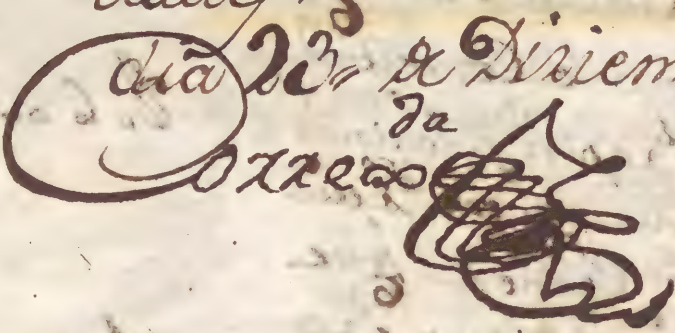 dia 23 de Diziem
da
Correa